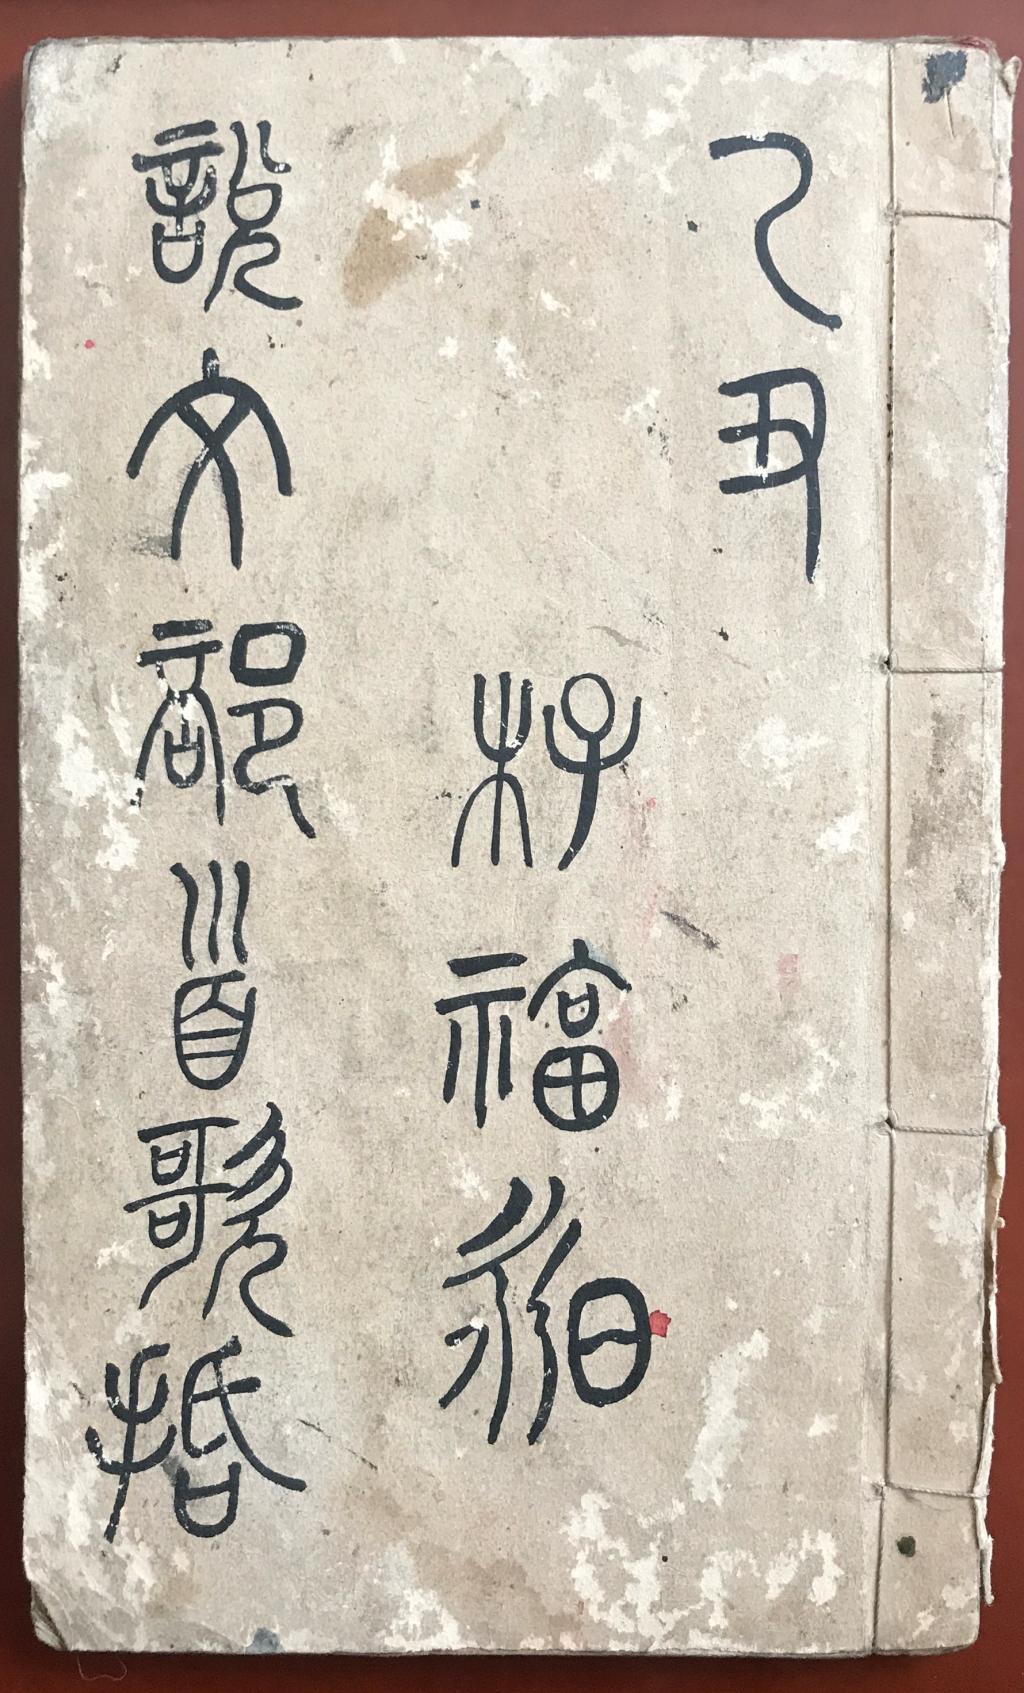 乙丑
杍福昶
說文部首歌括